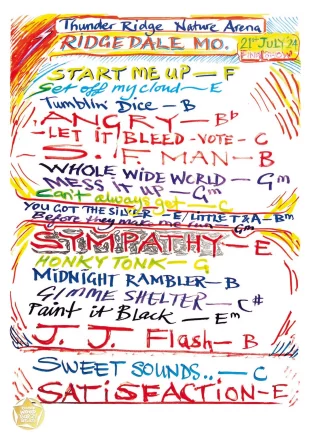 Thunder Ridge Nature Arena
RIDGEDALE MO. 21st JULY 24
START ME UP — F
Get off my cloud — E
Tumblin' Dice — B
ANGRY — Bb
LET IT BLEED - VOTE - C
S. F. MAN — B
WHOLE WIDE WORLD — Gm
MESS IT UP — Gm
Can't always get — C
YOU GOT THE SILVER — E / LITTLE T&A — Bm
Before they make me run Gm
SYMPATHY — E
HONKY TONK — G
MIDNIGHT RAMBLER — B
GIMME SHELTER — C#
Paint it Black — Em
J. J. Flash — B
SWEET SOUNDS.. — C
SATISFACTION — E